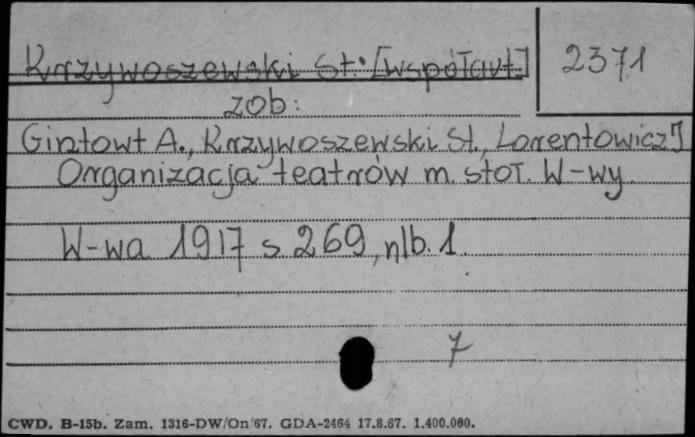 Krzywoszewski St. [współaut.] 2371
zob:
Gintowt A., Krzywoszewski St., Lorentowicz J
Organizacja teatrów m. stoł. W-wy
W-wa 1917 s. 269, nlb. 1.
7
CWD. B-15b. Zam. 1316-DW/On/67. GDA-2464 17.8.67. 1.400.000.